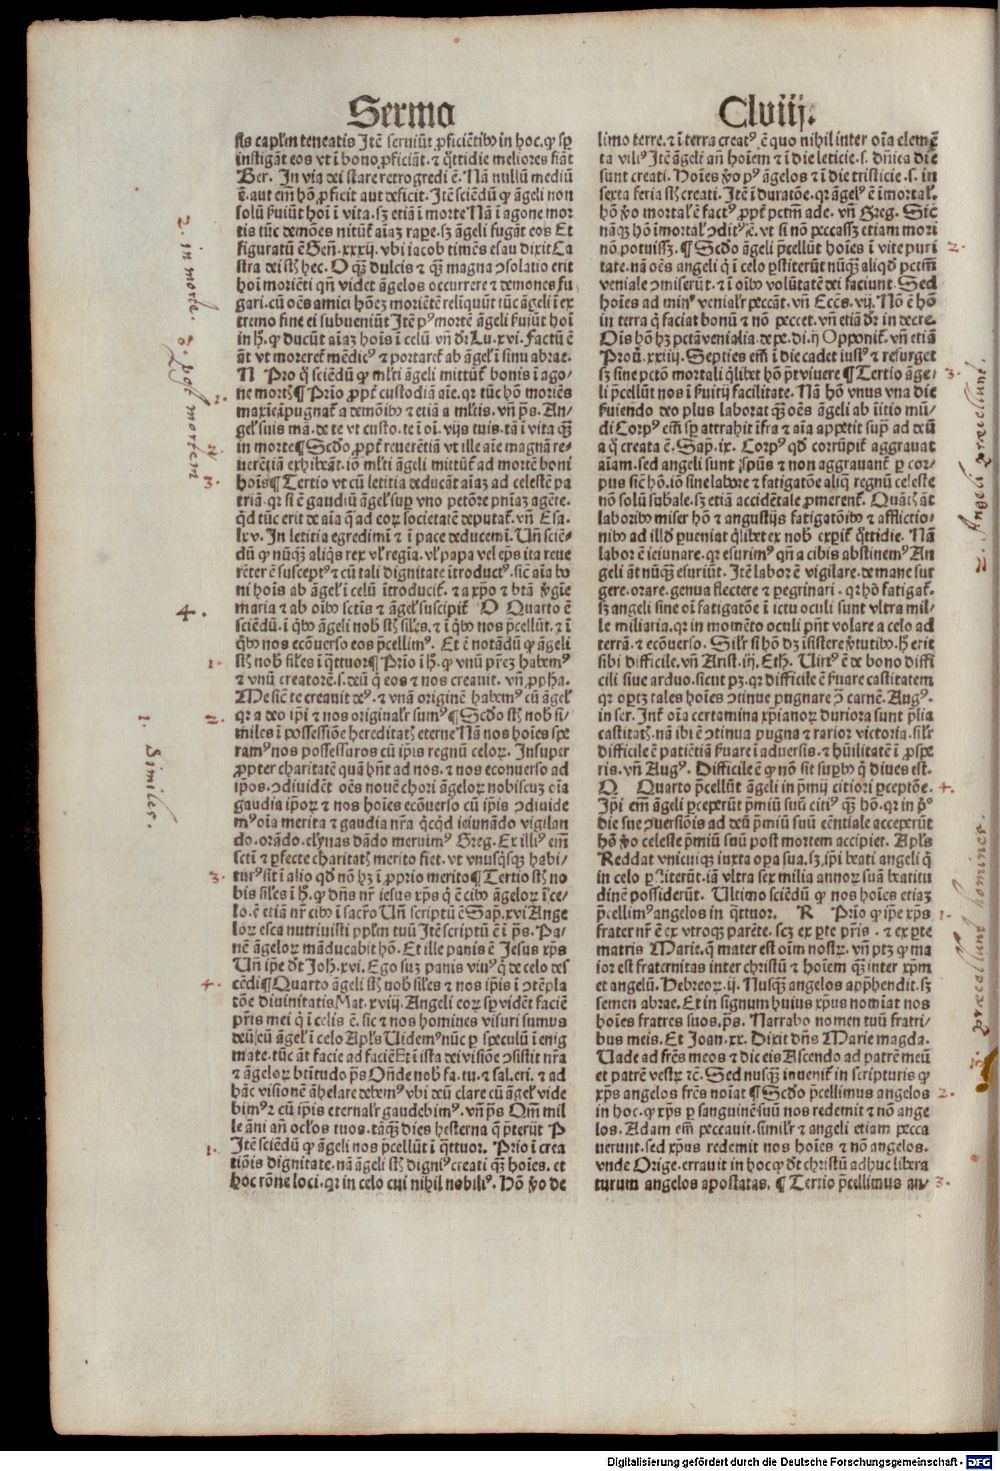 Sermo
Clviij.
sis capl'm teneatis Itē seruiūt ꝓficiētibꝰ in hoc. ꝙ sꝑ
instigāt eos vt ī bono ꝓficiāt. ⁊ q̄ttidie meliores fiāt
Ber. In via dei stare retrogredi ē. Nā nullū mediū
ē. aut em̄ hō ꝓficit aut deficit. Itē sciēdū ꝙ āgeli non
solū ẜuiūt hoī ī vita. sꝫ etiā ī morte Nā ī agone mor
tis tūc demōes nitūt᷑ aīaꝫ rape. sꝫ āgeli fugāt eos Et
figuratū ē Geñ. xxxij. vbi iacob timēs esau dixit Ca
stra dei sūt hec. O qꝫ dulcis ⁊ qꝫ magna ↄsolatio erit
hoī moriēti qn̄ videt āgelos occurrere ⁊ demones fu
gari. cū oēs amici hōeꝫ moriētē reliquūt tūc āgeli ī ex
tremo fine ei subueniūt Itē pꝰ mortē āgeli ẜuiūt hoī
in h̄. ꝙ ducūt aīaꝫ hoīs ī celū. vn̄ dr̄ Lu. xvi. Factū ē
āt vt morere᷑ mēdicꝰ ⁊ portaret᷑ ab āgel' ī sinu abrae.
N Pro q̄ sciēdū ꝙ ml'ti āgeli mittūt᷑ bonis ī ago/
ne mortꝭ ¶ Prīo ꝓpt᷑ custodiā aīe. qr tūc hōm moriēs
maxīe īpugnat᷑ a demōibꝰ ⁊ etiā a ml'tis. vn̄ p̄s. An/
gel' suis mā. de te vt custo. te ī oī. vijs tuis. tā ī vita qꝫ
in morte ¶ Scdo ꝓpt᷑ reuerētiā vt ille aīe magnā re/
uerētiā exhibeāt. iō ml'ti āgeli mittūt᷑ ad mortē boni
hoīs ¶ Tertio vt cū letitia deducāt aīaꝫ ad celestē pa
triā. qr si ē gaudiū āgel' suꝑ vno petōre pn̄iaꝫ agēte.
qd̄ tūc erit de aīa q̄ ad eoꝝ societatē deputat᷑. vn̄ Esa.
lxv. In letitia egredimī ⁊ ī pace deducemī. Vn̄ sciē/
dū ꝙ nūqꝫ aliq̄s rex vl' regīa. vl' papa vel ep̄s ita reue
rēter ē susceptꝰ ⁊ cū tali dignitate ītroductꝰ. sic̄ aīa bo
ni hoīs ab āgel' ī celū ītroducit᷑. ⁊ a xp̄o ⁊ btā ꝟgīe
maria ⁊ ab oībꝰ sctīs ⁊ āgel' suscipit᷑ O Quarto ē
sciēdū. ī q̄bꝰ āgeli nob̄ sūt siles. ⁊ ī q̄bꝰ nos p̄cellūt. ⁊ ī
q̄bꝰ nos ecōuerso eos p̄cellimꝰ. Et ē notādū ꝙ āgeli
sūt nob̄ siles ī q̄ttuor ¶ Prīo ī h̄. ꝙ vnū pr̄eꝫ habemꝰ
⁊ vnū creatorē. s. deū q̄ eos ⁊ nos creauit. vn̄ ꝓpha.
Me sic̄ te creauit deꝰ. ⁊ vnā originē habemꝰ cū āgel'
qr a deo ip̄i ⁊ nos original'r sumꝰ ¶ Scdo sūt nob̄ si/
miles ī possessiōe hereditatꝭ eterne Nā nos hoīes spe
ramꝰ nos possessuros cū ip̄is regnū celoꝝ. Insuper
ꝓpter charitatē quā hn̄t ad nos. ⁊ nos econuerso ad
ip̄os. ↄdiuidēt oēs nouē chori āgeloꝝ nobiscuꝫ oīa
gaudia ip̄oꝝ ⁊ nos hoīes ecōuerso cū ip̄is ↄdiuide
mꝰ oīa merita ⁊ gaudia nr̄a q̄cqd ieiunādo vigilan
do. orādo. elynas dādo meruimꝰ Greg. Ex illiꝰ em̄
sctī ⁊ ꝑfecte charitatꝭ merito fiet. vt vnusqꝫ habi/
turꝰ sit ī alio qd̄ nō hꝫ ī ꝓprio merito ¶ Tertio sūt no
bis siles ī h̄. ꝙ dn̄s nr̄ iesus xp̄s q̄ ē cibꝰ āgeloꝝ ī ce/
lo. ē etiā nr̄ cibꝰ ī sacro Vn̄ scriptū ē Sap. xvi Ange
loꝝ esca nutriuisti ppl'm tuū Itē scriptū ē ī p̄s. Pa/
nē āgeloꝝ māducabit hō. Et ille panis ē Jesus xp̄s
Vn̄ ip̄e dt Joh. xvi. Ego suꝫ panis viuꝰ q̄ de celo des
cēdi ¶ Quarto āgeli sūt nob̄ siles ⁊ nos ip̄is ī ↄtēpla
tōe diuinitatis Mat. xviij. Angeli eoꝝ sꝑ vidēt faciē
pr̄is mei q̄ ī celis ē. sic ⁊ nos homines visuri sumus
deū cū āgel' ī celo Apl's Videmꝰ nūc ꝑ speculū ī enig
mate. tūc āt facie ad faciē Et ī ista dei visiōe ↄsistit nr̄a
⁊ āgeloꝝ btītudo p̄s Oñde nob̄ fa. tu. ⁊ sal. eri. ⁊ ad
hāc visionē āhelare debemꝰ vbi deū clare cū āgel' vide
bimꝰ ⁊ cū ip̄is eternal'r gaudebimꝰ. vn̄ p̄s Qm̄ mil
le āni an̄ oclos tuos. tāqꝫ dies hesterna q̄ p̄terijt P
Itē sciēdū ꝙ āgeli nos p̄cellūt ī q̄ttuor. Prīo ī crea
tiōis dignitate. nā āgeli sūt digniꝰ creati qꝫ hoīes. et
hoc rōne loci. qr in celo cui nihil nobiliꝰ. Hō ꝟo de
limo terre. ⁊ ī terra creatꝰ ē quo nihil inter oīa elemē
ta viliꝰ Itē āgeli an̄ hoīem ⁊ ī die leticie. s. dn̄ica die
sunt creati. Hoīes ꝟo pꝰ āgelos ⁊ ī die tristicie. s. in
sexta feria sūt creati. Itē ī duratōe. qr āgelꝰ ē īmortal'.
hō ꝟo mortal' ē factꝰ ꝓpt᷑ pctm̄ ade. vn̄ Greg. Sic
nāqꝫ hō īmortal' ↄditꝰ ē. vt si nō peccass̄ etiam mori
nō potuiss̄. ¶ Scdo āgeli p̄cellūt hoīes ī vite puri
tate. nā oēs angeli q̄ ī celo ꝑstiterūt nūqꝫ aliqd̄ pctm̄
veniale ↄmiserūt. ⁊ ī oībꝰ volūtatē dei faciunt. Sed
hoīes ad minꝰ venial'r peccāt. vn̄ Eccs. vij. Nō ē hō
in terra q̄ faciat bonū ⁊ nō peccet. vn̄ etiā dr̄ in decre.
Oīs hō hꝫ pctā venialia. de pe. di. ij Opponit᷑. vn̄ etiā
Prou. xxiiij. Septies em̄ ī die cadet iustꝰ ⁊ resurget
sꝫ sine pctō mortali q̄libet hō pt viuere ¶ Tertio āge/
li p̄cellūt nos ī ẜuitij facilitate. Nā hō vnus vna die
ẜuiendo deo plus laborat qꝫ oēs āgeli ab īitio mū/
di Corpꝰ em̄ sꝑ attrahit īfra ⁊ aīa appetit supͣ ad deū
a q̄ creata ē. Sap. ix. Corpꝰ qd̄ corrūpit᷑ aggrauat
aīam. sed angeli sunt spūs ⁊ non aggrauant᷑ ꝑ cor/
pus sic̄ hō. iō sine labore ⁊ fatigatōe aliq̄ regnū celeste
nō solū s̄bale. sꝫ etiā accidētale ꝓmerent᷑. Quātꝭ āt
laboribꝰ miser hō ⁊ angustijs fatigatōibꝰ ⁊ afflictio/
nibꝰ ad illd̄ ꝑueniat q̄libet ex nob̄ exꝑit᷑ q̄ttidie. Nā
labor ē ieiunare. qr esurimꝰ qn̄ a cibis abstinemꝰ An
geli āt nūqꝫ esuriūt. Itē labor ē vigilare. de mane sur
gere. orare. genua flectere ⁊ ꝑegrinari. qr hō fatigat᷑.
sꝫ angeli sine oī fatigatōe ī ictu oculi sunt vltra mil/
le miliaria. qr in momēto oculi pn̄t volare a celo ad
terrā. ⁊ ecōuerso. Sil'r si hō dꝫ īsistere ꝟtutibꝰ. h̄ erit
sibi difficile. vn̄ Arist. iij. Eth. Virtꝰ ē de bono diffi
cili siue arduo. sicut pꝫ. qr difficile ē ẜuare castitatem
qr oꝑtꝫ tales hoīes ↄtinue pugnare ↄ̄ carnē. Augꝰ.
in ser. Int᷑ oīa certamina xp̄ianoꝝ duriora sunt p̄lia
castitatꝭ. nā ibi ē ↄtinua pugna ⁊ rarior victoria. sil'r
difficile ē patiētiā ẜuare ī aduersis. ⁊ hūilitatē ī ꝓspe
ris. vn̄ Augꝰ. Difficile ē ꝙ nō sit suꝑbꝰ q̄ diues est.
Q Quarto p̄cellūt āgeli in p̄mij citiori ꝑceptōe.
Ip̄i em̄ āgeli ꝑceperūt p̄miū suū citiꝰ qꝫ hō. qr in pͦ
die sue ↄuersiōis ad deū p̄miū suū eēntiale acceperūt
hō ꝟo celeste p̄miū suū post mortem accipiet. Apl's
Reddat vnicuiqꝫ iuxta oꝑa sua. sꝫ ip̄i beati angeli q̄
in celo ꝑstiterūt. iā vltra sex milia annoꝝ suā beatitu
dinē possiderūt. Ultimo sciēdū ꝙ nos hoīes etiaꝫ
p̄cellimꝰ angelos in q̄ttuor. R Prīo ꝙ ip̄e xp̄s
frater nr̄ ē ex vtroqꝫ parēte. scꝫ ex ꝑte pr̄is. ⁊ ex ꝑte
matris Marie. q̄ mater est oīm nostꝝ. vn̄ ptꝫ ꝙ ma
ior est fraternitas inter christū ⁊ hoīem qꝫ inter xp̄m
et angelū. Hebreoꝝ. ij. Nusqꝫ angelos app̄hendit. sꝫ
semen abrae. Et in signum huius xp̄us nomīat nos
hoīes fratres suos. p̄s. Narrabo nomen tuū fratri/
bus meis. Et Joan. xx. Dixit dn̄s Marie magda.
Vade ad fr̄es meos ⁊ dic eis Ascendo ad patrē meū
et patrē vestꝝ ⁊c. Sed nusqꝫ inuenit᷑ in scripturis ꝙ
xp̄s angelos fr̄es noīat ¶ Scdo p̄cellimus angelos
in hoc. ꝙ xp̄s ꝑ sanguinē suū nos redemit ⁊ nō ange
los. Adam em̄ peccauit. simil'r ⁊ angeli etiam pecca
uerunt. sed xp̄us redemit nos hoīes ⁊ nō angelos.
vnde Orige. errauit in hoc ꝙ dt christū adhuc libera
turum angelos apostatas. ¶ Tertio p̄cellimus an/
2. in morte.
3. post mortem
1.
2.
3.
4.
1.
2.
1. Similes.
3.
4.
1.
2.
3.
2. Angeli praecellunt.
4.
1.
3. praecellunt homines.
2.
3.
Digitalisierung gefördert durch die Deutsche Forschungsgemeinschaft - DFG